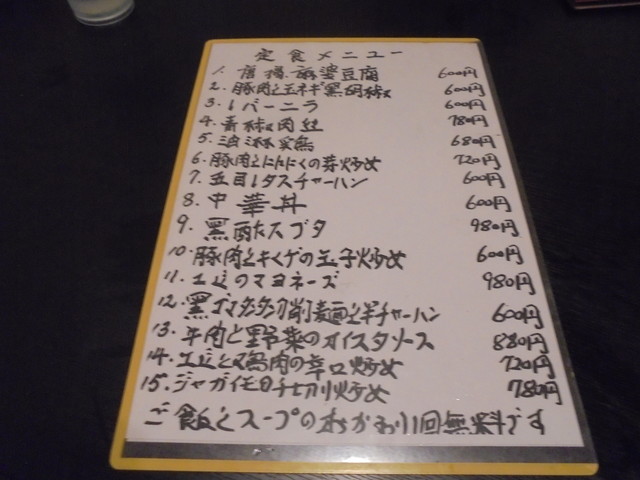 定食メニュー
1. 麻婆豆腐 600円
2. 豚肉と玉ネギ黒胡椒 600円
3. レバーニラ 600円
4. 青椒肉絲 780円
5. 油淋鶏 680円
6. 豚肉とにんにくの芽炒め 720円
7. 五目レタスチャーハン 600円
8. 中華丼 600円
9. 黒酢スブタ 980円
10. 豚肉とキクラゲの玉子炒め 600円
11. エビのマヨネーズ 980円
12. 黒ゴマタンタン刀削麺と半チャーハン 600円
13. 牛肉と野菜のオイスタソース 880円
14. エビと鶏肉の辛口炒め 720円
15. ジャガイモ千切り炒め 780円
ご飯とスープのおかわり1回無料です